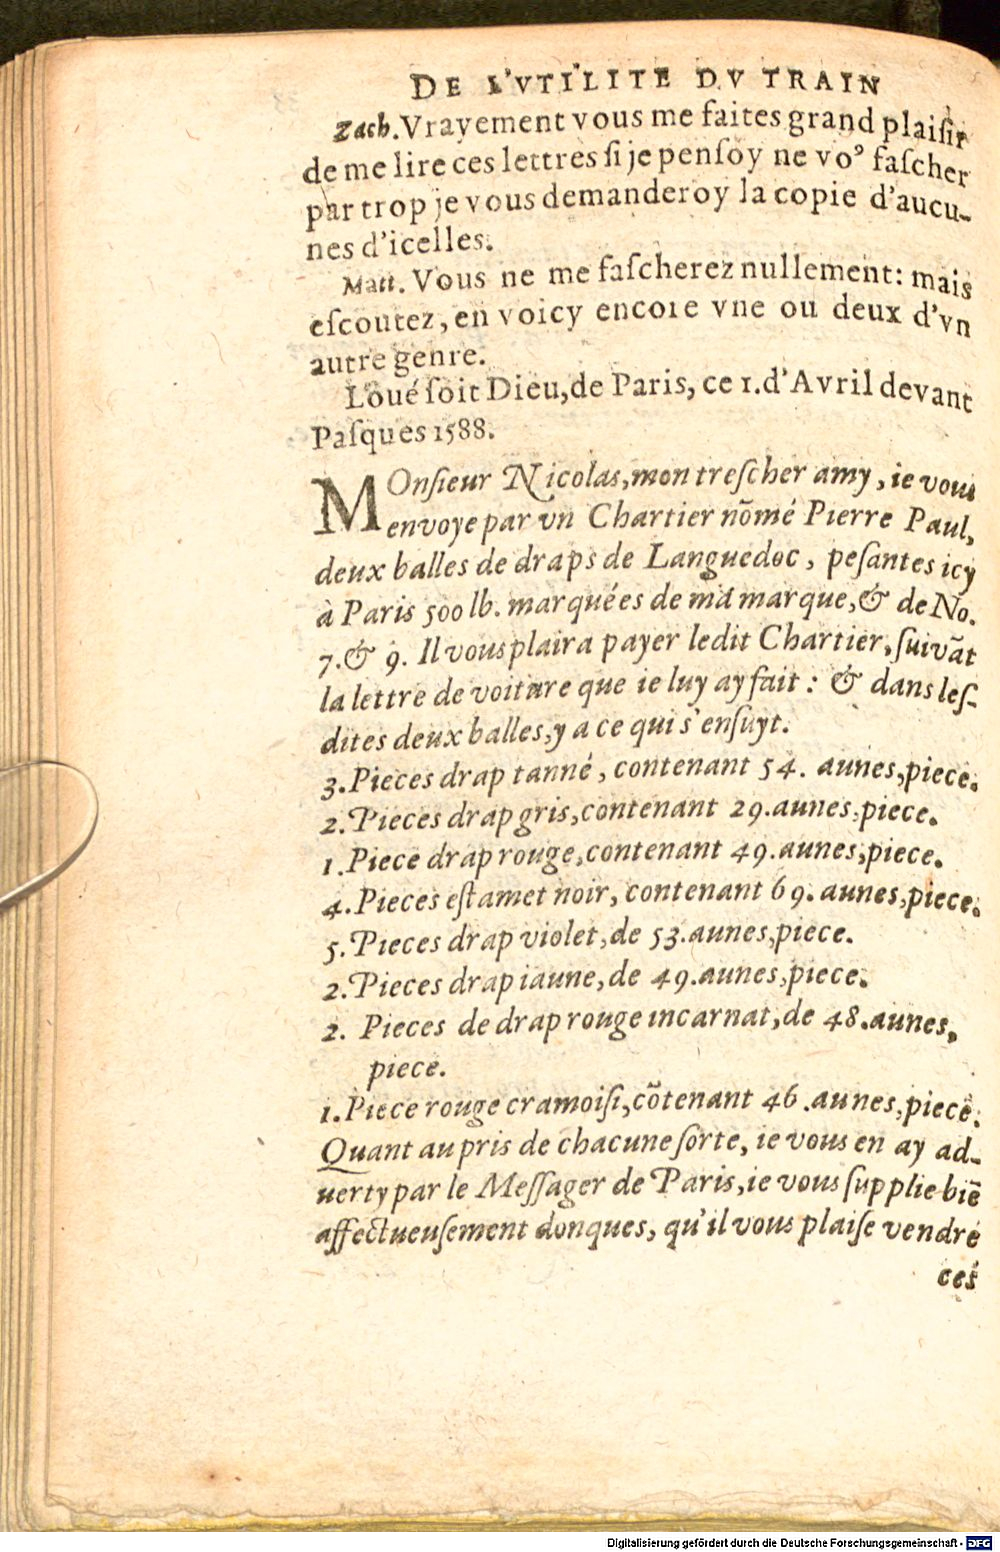 DE L'VTILITE DV TRAIN
Zach. Vrayement vous me faites grand plaiſir
de me lire ces lettres ſi je penſoy ne voꝰ faſcher
par trop je vous demanderoy la copie d'aucu-
nes d'icelles.
Matt. Vous ne me faſcherez nullement: mais
eſcoutez, en voicy encore vne ou deux d'vn
autre genre.
Loué ſoit Dieu, de Paris, ce 1. d'Avril devant
Paſques 1588.
MOnſieur Nicolas, mon treſcher amy, ie vous
envoye par vn Chartier nōmé Pierre Paul,
deux balles de draps de Languedoc, peſantes icy
à Paris 500 lb. marquées de ma marque, & de No.
7. & 9. Il vous plaira payer ledit Chartier, ſuivāt
la lettre de voiture que ie luy ay fait: & dans leſ-
dites deux balles, y a ce qui s'enſuyt.
3. Pieces drap tanné, contenant 54. aunes, piece.
2. Pieces drap gris, contenant 29. aunes, piece.
1. Piece drap rouge, contenant 49. aunes, piece.
4. Pieces eſtamet noir, contenant 69. aunes, piece.
5. Pieces drap violet, de 53. aunes, piece.
2. Pieces drap iaune, de 49. aunes, piece.
2. Pieces de drap rouge incarnat, de 48. aunes,
piece.
1. Piece rouge cramoiſi, cōtenant 46. aunes, piece.
Quant au pris de chacune ſorte, ie vous en ay ad-
uerty par le Meſſager de Paris, ie vous ſupplie biē
affectueuſement donques, qu'il vous plaiſe vendre
ces
Digitalisierung gefördert durch die Deutsche Forschungsgemeinschaft - DFG